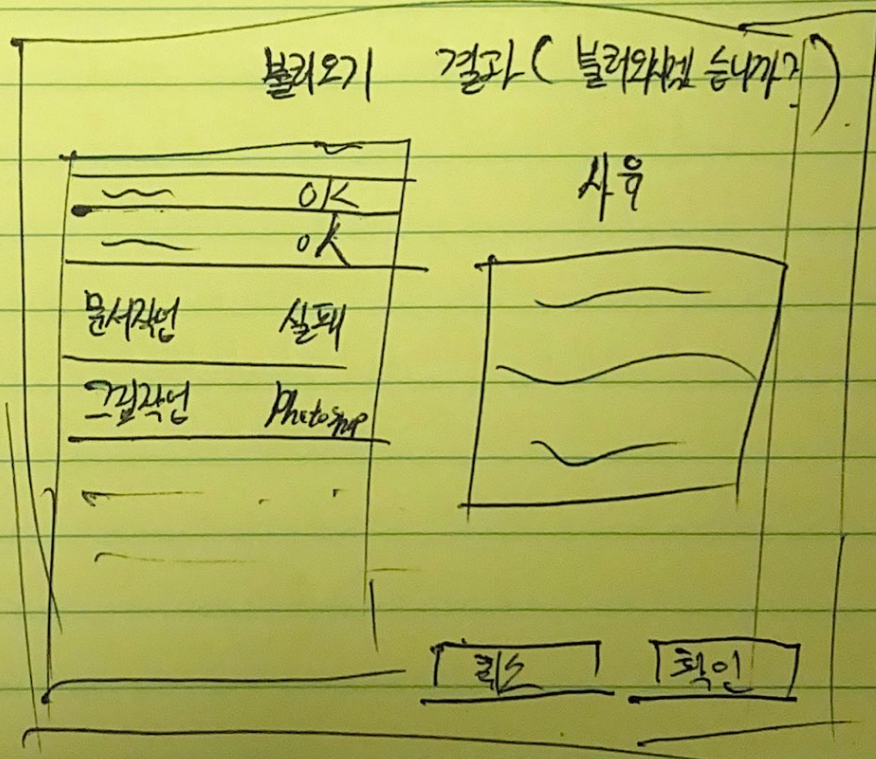 불러오기 결과 ( 불러오시겠습니까? )
사유
OK
OK
문서작업 실패
그림작업 Photoshop
취소 확인